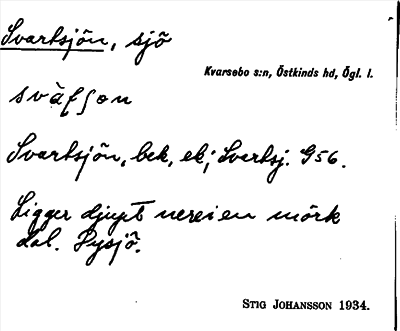 Svartsjön, sjö
Kvarsebo s:n, Östkinds hd, Ögl. l.
Svartsjön, bek, ek; Svertsj. G56.
Ligger djupt nere i en mörk
dal. Gysjö.
STIG JOHANSSON 1934.